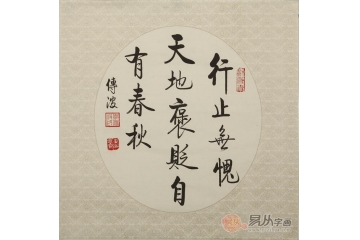 行止無愧
天地褒貶自
有春秋
傳波
易从字画